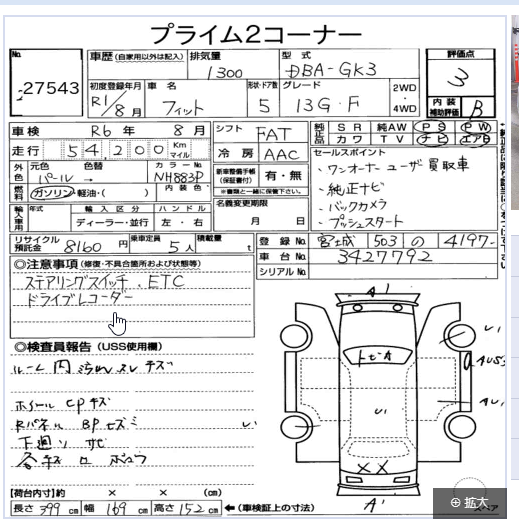 プライム2コーナー
No.
27543
車歴 (自家用以外は記入)
排気量
1300
型式
DBA-GK3
評価点
3
初度登録年月
R1/8月
車名
フィット
形状・ドア数
5
グレード
13G・F
2WD・4WD
内装補助評価
B
車検 R6年 8月
シフト FAT
純正品 SR 純AW PS PW
社外品 カワ TV ナビ エアB
走行 54,200 Km マイル
冷房 AAC
セールスポイント
・ワンオーナー ユーザー買取車
・純正ナビ
・バックカメラ
・プッシュスタート
外色 元色 色替 カラーNo.
パール→ NH883P
新車整備手帳(保証書付) 有・無
※書類と一緒に保管下さい。
燃料 ガソリン・軽油・( ) 内装色
名義変更期限
月 日
輸入車用 年式 輸入区分 ハンドル
ディーラー・並行 左・右
リサイクル預託金 8160円
乗車定員 5人
積載量 t
登録No. 宮城 503 の 4197
車台No. 3427792
シリアルNo.
◎注意事項 (修復・不具合箇所および状態等)
ステアリングスイッチ. ETC
ドライブレコーダー
◎検査員報告 (USS使用欄)
ルーム内 汚れ スレ キズ
ホイールCPキズ
下廻り サビ
A1
トビA
XX
A1
【荷台内寸】約 × × (cm)
長さ 399 cm 幅 169 cm 高さ 152 cm ←(車検証上の寸法)
拡大